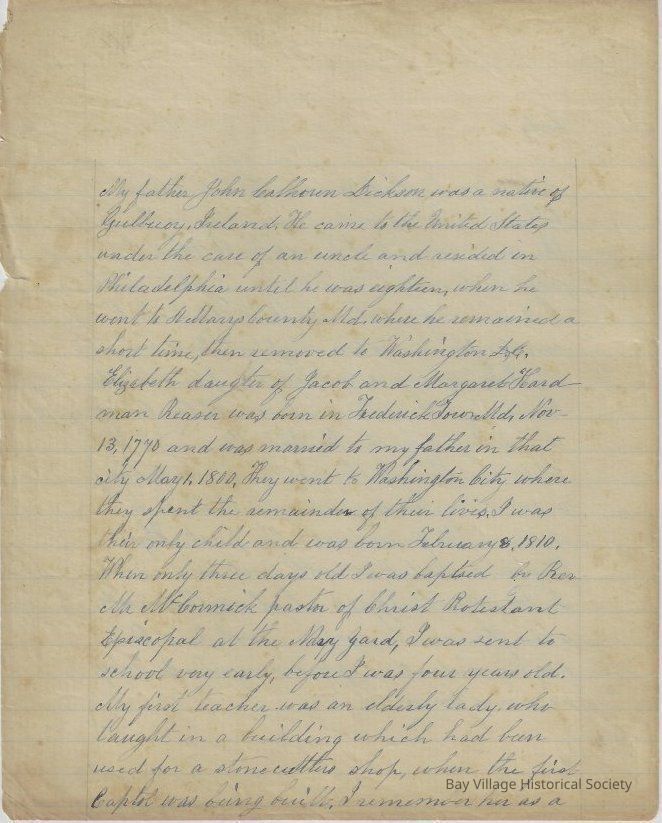 My father John Calhoun Dickson was a native of
Gulbuoy, Ireland. He came to the United States
under the care of an uncle and resided in
Philadelphia until he was eighteen, when he
went to St Marys County Md. where he remained a
short time, then removed to Washington D.C.
Elizabeth daugter of Jacob and Margaret Hard
man Reaser was born in Frederick Town Md, Nov-
13, 1770 and was married to my father in that
city May 1, 1800. They went to Washington City where
they spent the remainder of their lives. I was
their only child and was born February 8, 1810.
When only three days old I was baptised by Rev
Mr McCormick pastor of Christ Rotestant
Episcopal at the Navy Yard, I was sent to
school very early, before I was four years old.
My first teacher was an elderly lady who
taught in a building which had been
used for a stonecutters shop, when the first
Captol was being built. I remember her as a
Bay Village Historical Society